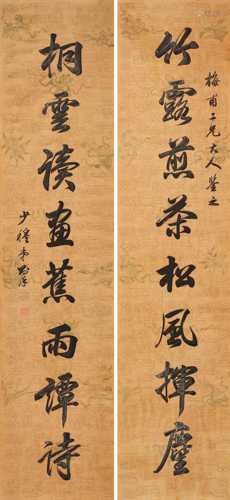 梅甫二兄大人鉴之
竹露煎茶松风挥麈
桐云读画蕉雨谭诗
少穆弟